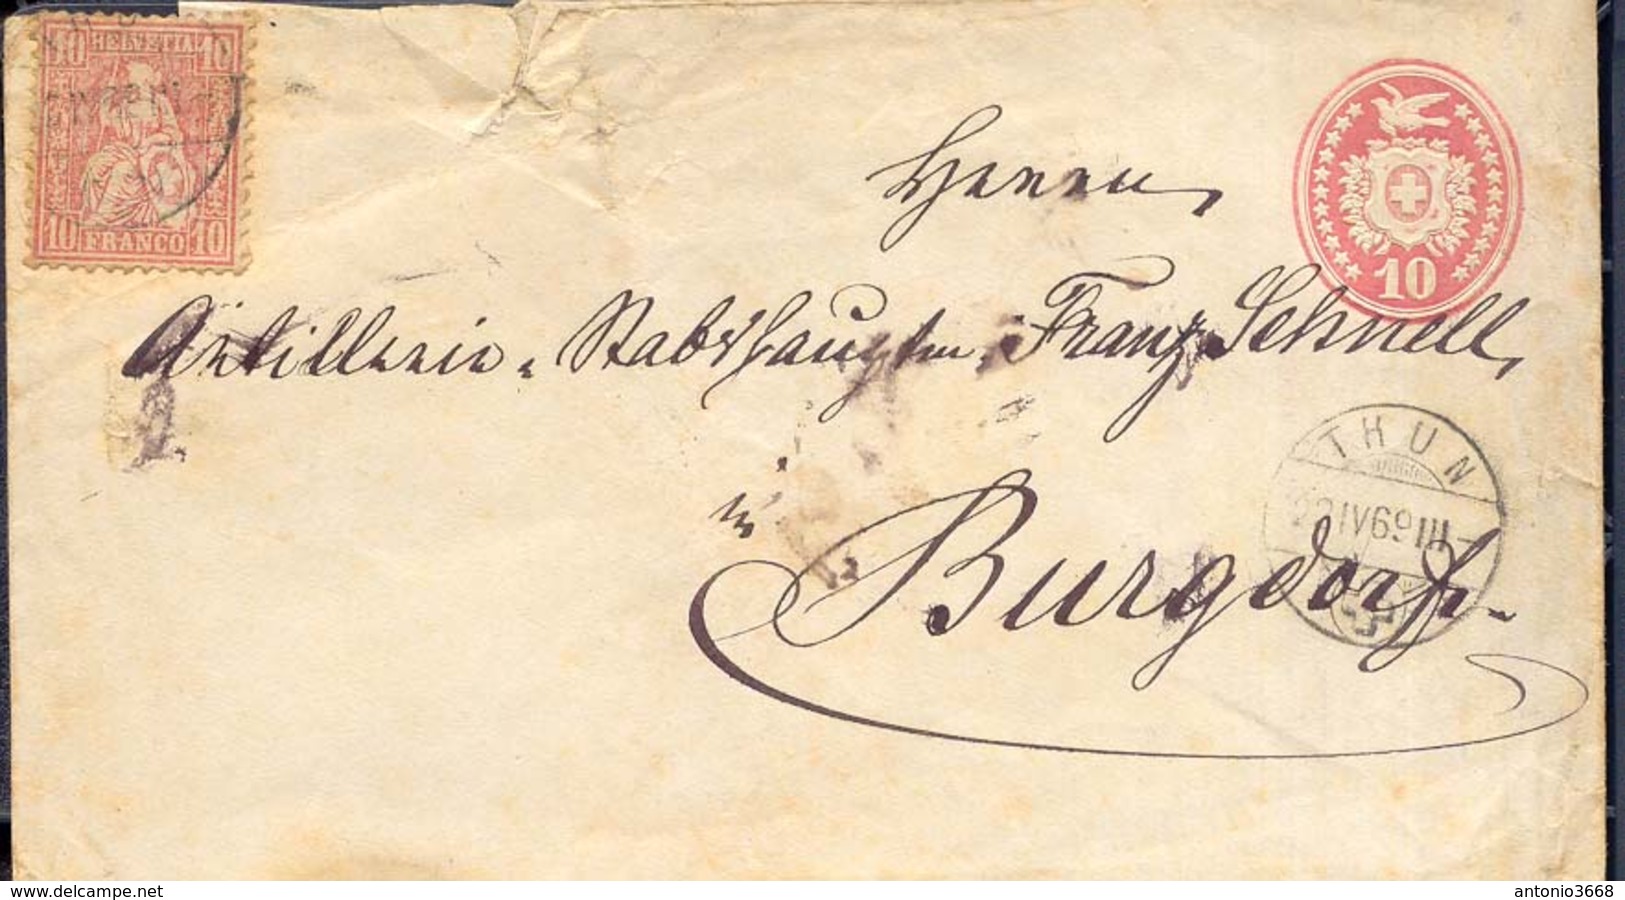 10 HELVETIA 10
10 FRANCO 10
10
Herrn
Artillerie-Stabshauptm. Franz Schnell,
in
Burgdorf.
THUN
IV 69 III
www.delcampe.net
antonio3668